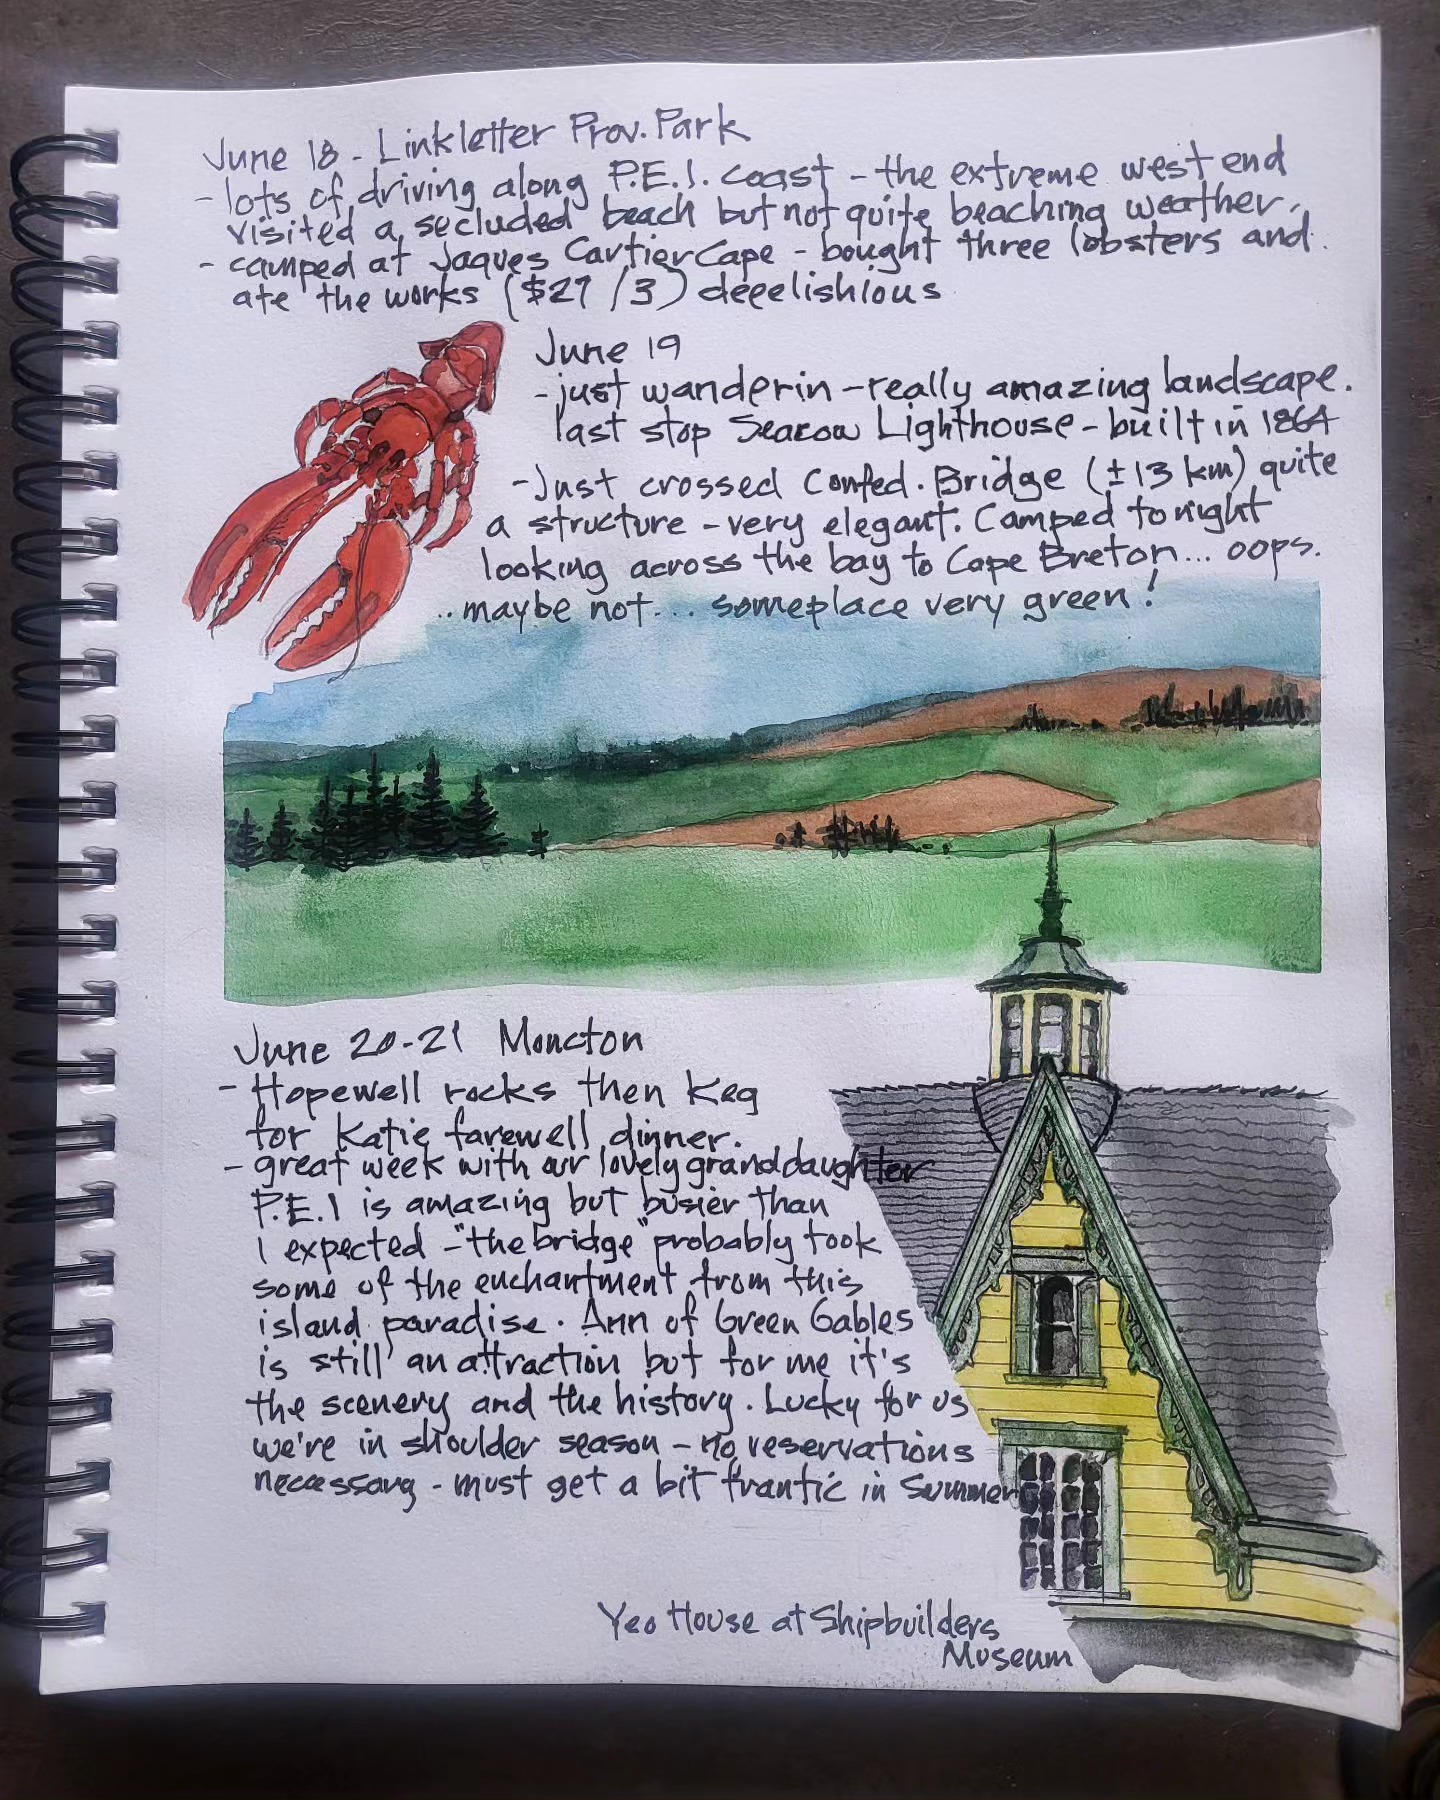 June 18 - Linkletter Prov. Park
- lots of driving along P.E.I. coast - the extreme west end
visited a secluded beach but not quite beaching weather.
- camped at Jaques Cartier Cape - bought three lobsters and
ate the works ($27 /3) deeelishious
June 19
- just wanderin - really amazing landscape.
last stop Seacow Lighthouse - built in 1864
- Just crossed Confed. Bridge (±13 km) quite
a structure - very elegant. Camped tonight
looking across the bay to Cape Breton... oops.
..maybe not... someplace very green!
June 20-21 Moncton
- Hopewell rocks then Keg
for Katie farewell dinner.
- great week with our lovely granddaughter
P.E.I is amazing but busier than
I expected - "the bridge" probably took
some of the enchantment from this
island paradise. Ann of Green Gables
is still an attraction but for me it's
the scenery and the history. Lucky for us
we're in shoulder season - no reservations
necessary - must get a bit frantic in Summer
Yeo House at Shipbuilders
Museum